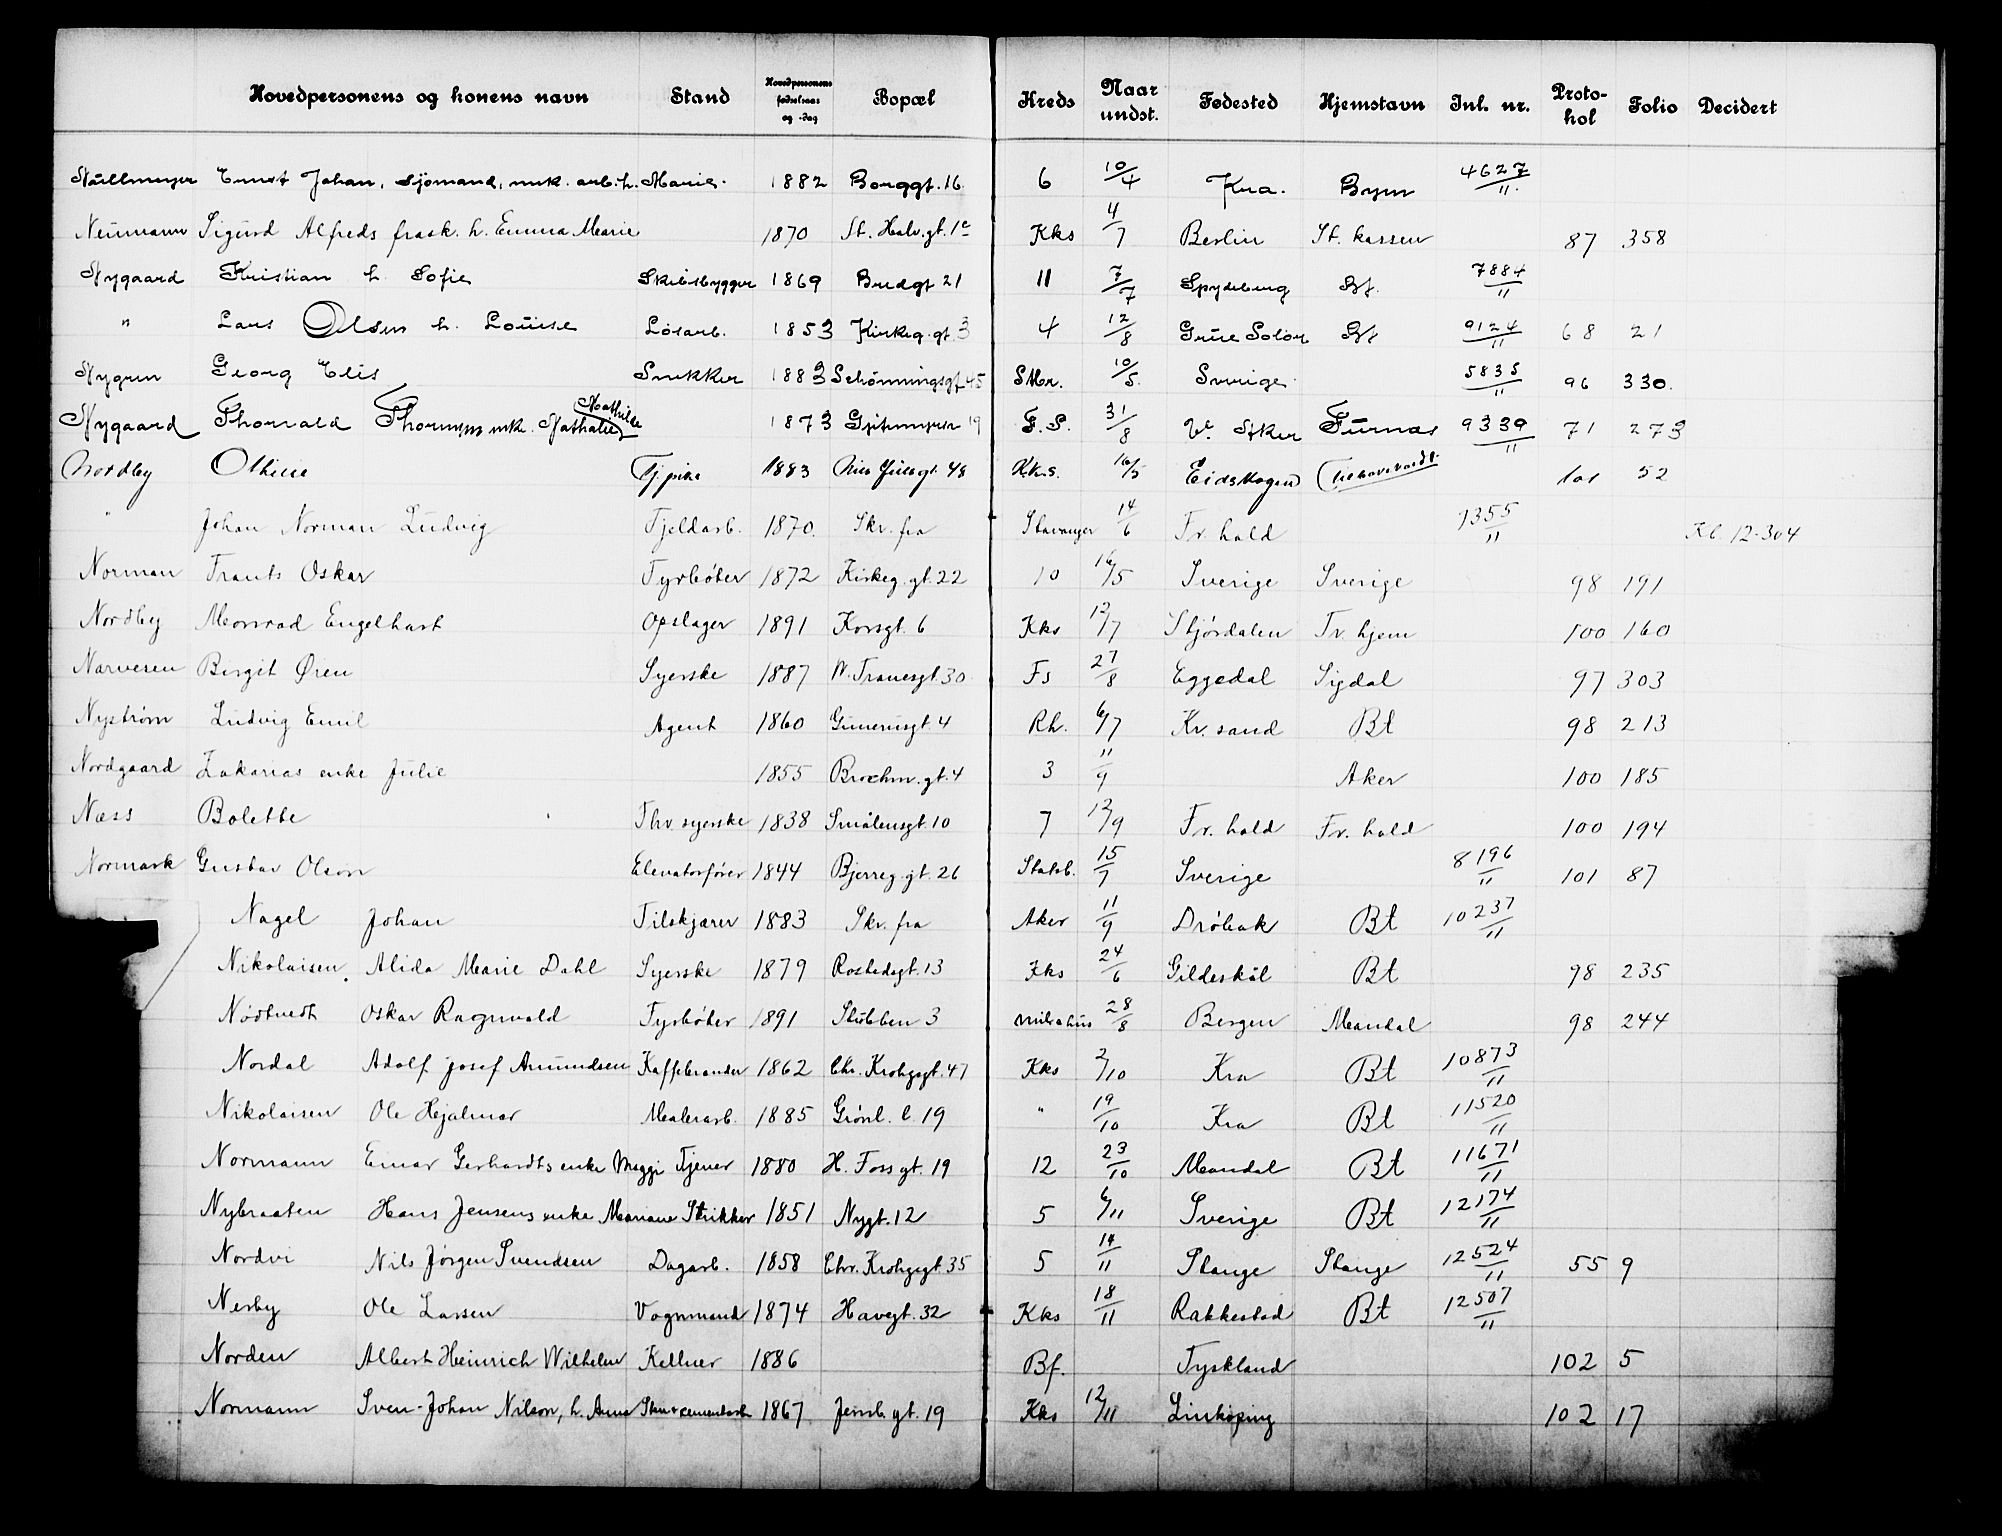 Hovedpersonens og konens navn Stand Hovedpersonens fødselsaar og -dag Bopæl Kreds Naar undst. Fødested Hjemstavn Inl. nr. Protokol Folio Decidert
Nüllmeyer Ernst Johan, Sjømand, enk. arb. h. Marie. 1882 Borggt. 16. 6 10/4 Kra. Bym 4627/11.
Neumann Sigurd Alfreds frask. h. Emma Marie 1870 St. Halv. gt. 1c Kks 4/7 Berlin St. kassen 87 358
Nygaard Kristian h. Sofie Skibsbygger 1869 Bredgt 21 11 7/7 Spydeberg Bt. 7884/11
" Lars Olsen h. Louise Løsarb. 1853 Kirkeg. gt. 3 4 12/8 Grue Solør Bt 9124/11 68 21
Nygren Georg Elis Snekker 1883 Schønningsgt 45 SMr. 10/5. Sverige 5835/11 96 330.
Nygaard Thorvald Thorsens enk. Nathalie Mathilde 1873 Gjetemyrsv 19 F. S. 31/8 V. Aker Furnæs 9339/11 71 273
Nordby Othilie Tj. pike 1883 Nils Juels gt. 48 Kks. 16/5 Eidskogen 101 52
" Johan Norman Ludvig Fjeldarb. 1870. Skr. fra Stavanger 14/6 Fr. hald 7355/11 Kl. 12-304
Norman Frants Oskar Fyrbøter 1872 Kirkeg. gt. 22 10 16/5 Sverige Sverige 98 191
Nordby Monrad Engelhart Opslager 1891 Korsgt. 6 Kks 12/7 Stjørdalen Tr. hjem 100 160
Narvesen Bergit Øien Syerske 1887 N. Tranesgt. 30 Fs 27/8 Eggedal Sigdal 97 303
Nystrøm Ludvig Emil Agent 1860 Gunerusgt. 4 Rh. 6/7 Kr. sand Bt 98 213
Nordgaard Zakarias enke Julie 1855 Brochm. gt. 4 3 11/9 Aker 100 185
Næss Bolette Fhv. syerske 1838 Smålensgt. 10 7 12/9 Fr. hald Fr. hald 100 194
Normark Gustav Olson Elevatorfører 1844 Bjerreg. gt. 26 Statsb. 15/7 Sverige 8196/11 101 87
Nagel Johan Filskjærer 1883 Skr. fra Aker 11/9 Drøbak Bt 10237/11
Nikolaisen. Alida Marie Dahl Syerske 1879 Rostedsgt. 13 Kks 24/6 Gildeskål Bt 98 235
Nødtvedt Oskar Ragnvald Fyrbøter 1891 Stubben 3 28/8 Bergen Mandal 98 244
Nordal Adolf Josef Amundsen Kaffebrander 1862 Chr. Krohgsgt. 47 Kks 2/10 Kra Bt 10873/11
Nikolaisen Ole Hjalmar Malerarb. 1885 Grønl. l. 19 " 19/10 Kra Bt 11520/11
Normann Einar Gerhardts enke Meggi Tjener 1880 H. Foss gt. 19 12 23/10 Mandal Bt 11671/11
Nybraaten Hans Jensens enke Mariane Strikker 1851 Nygt. 12 5 6/11 Sverige Bt 12174/11
Nordvi Nils Jørgen Svendsen Dagarb. 1858 Chr. Krohgsgt. 35 5 14/11 Stange Stange 12524/11 55 9
Nesby Ole Larsen Vognmand 1874 Havegt. 32 Kks 18/11 Rakkestad Bt 12507/11
Norden Albert Heinrich Wilhelm Kellner 1886 Bf. Tyskland 102 5
Normann Sven-Johan Nilson, h. Anna Sten & cementarb. 1867 Jernb. gt. 19 Kks 12/11 Linköping 102 17